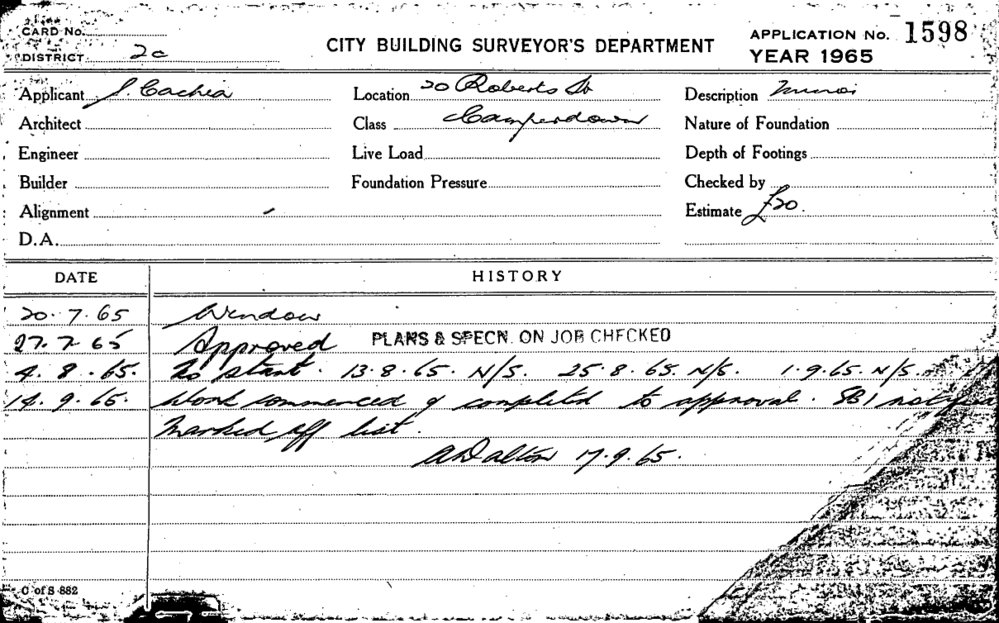 CARD No.
DISTRICT 2c
CITY BUILDING SURVEYOR'S DEPARTMENT
APPLICATION No. 1598
YEAR 1965
Applicant J. Cachia
Location 20 Roberts St
Description Minor
Architect
Class Camperdown
Nature of Foundation
Engineer
Live Load
Depth of Footings
Builder
Foundation Pressure
Checked by
Alignment -
Estimate £20.
D.A.
DATE
HISTORY
20.7.65 Window
27.7.65 Approved PLANS & SPECN. ON JOB CHECKED
4.8.65. No start. 13.8.65. N/S. 25.8.65. N/S. 1.9.65. N/S.
14.9.65. Work commenced & completed to approval. SB1
Marked off list.
A Dalton 17.9.65.
C of S 882